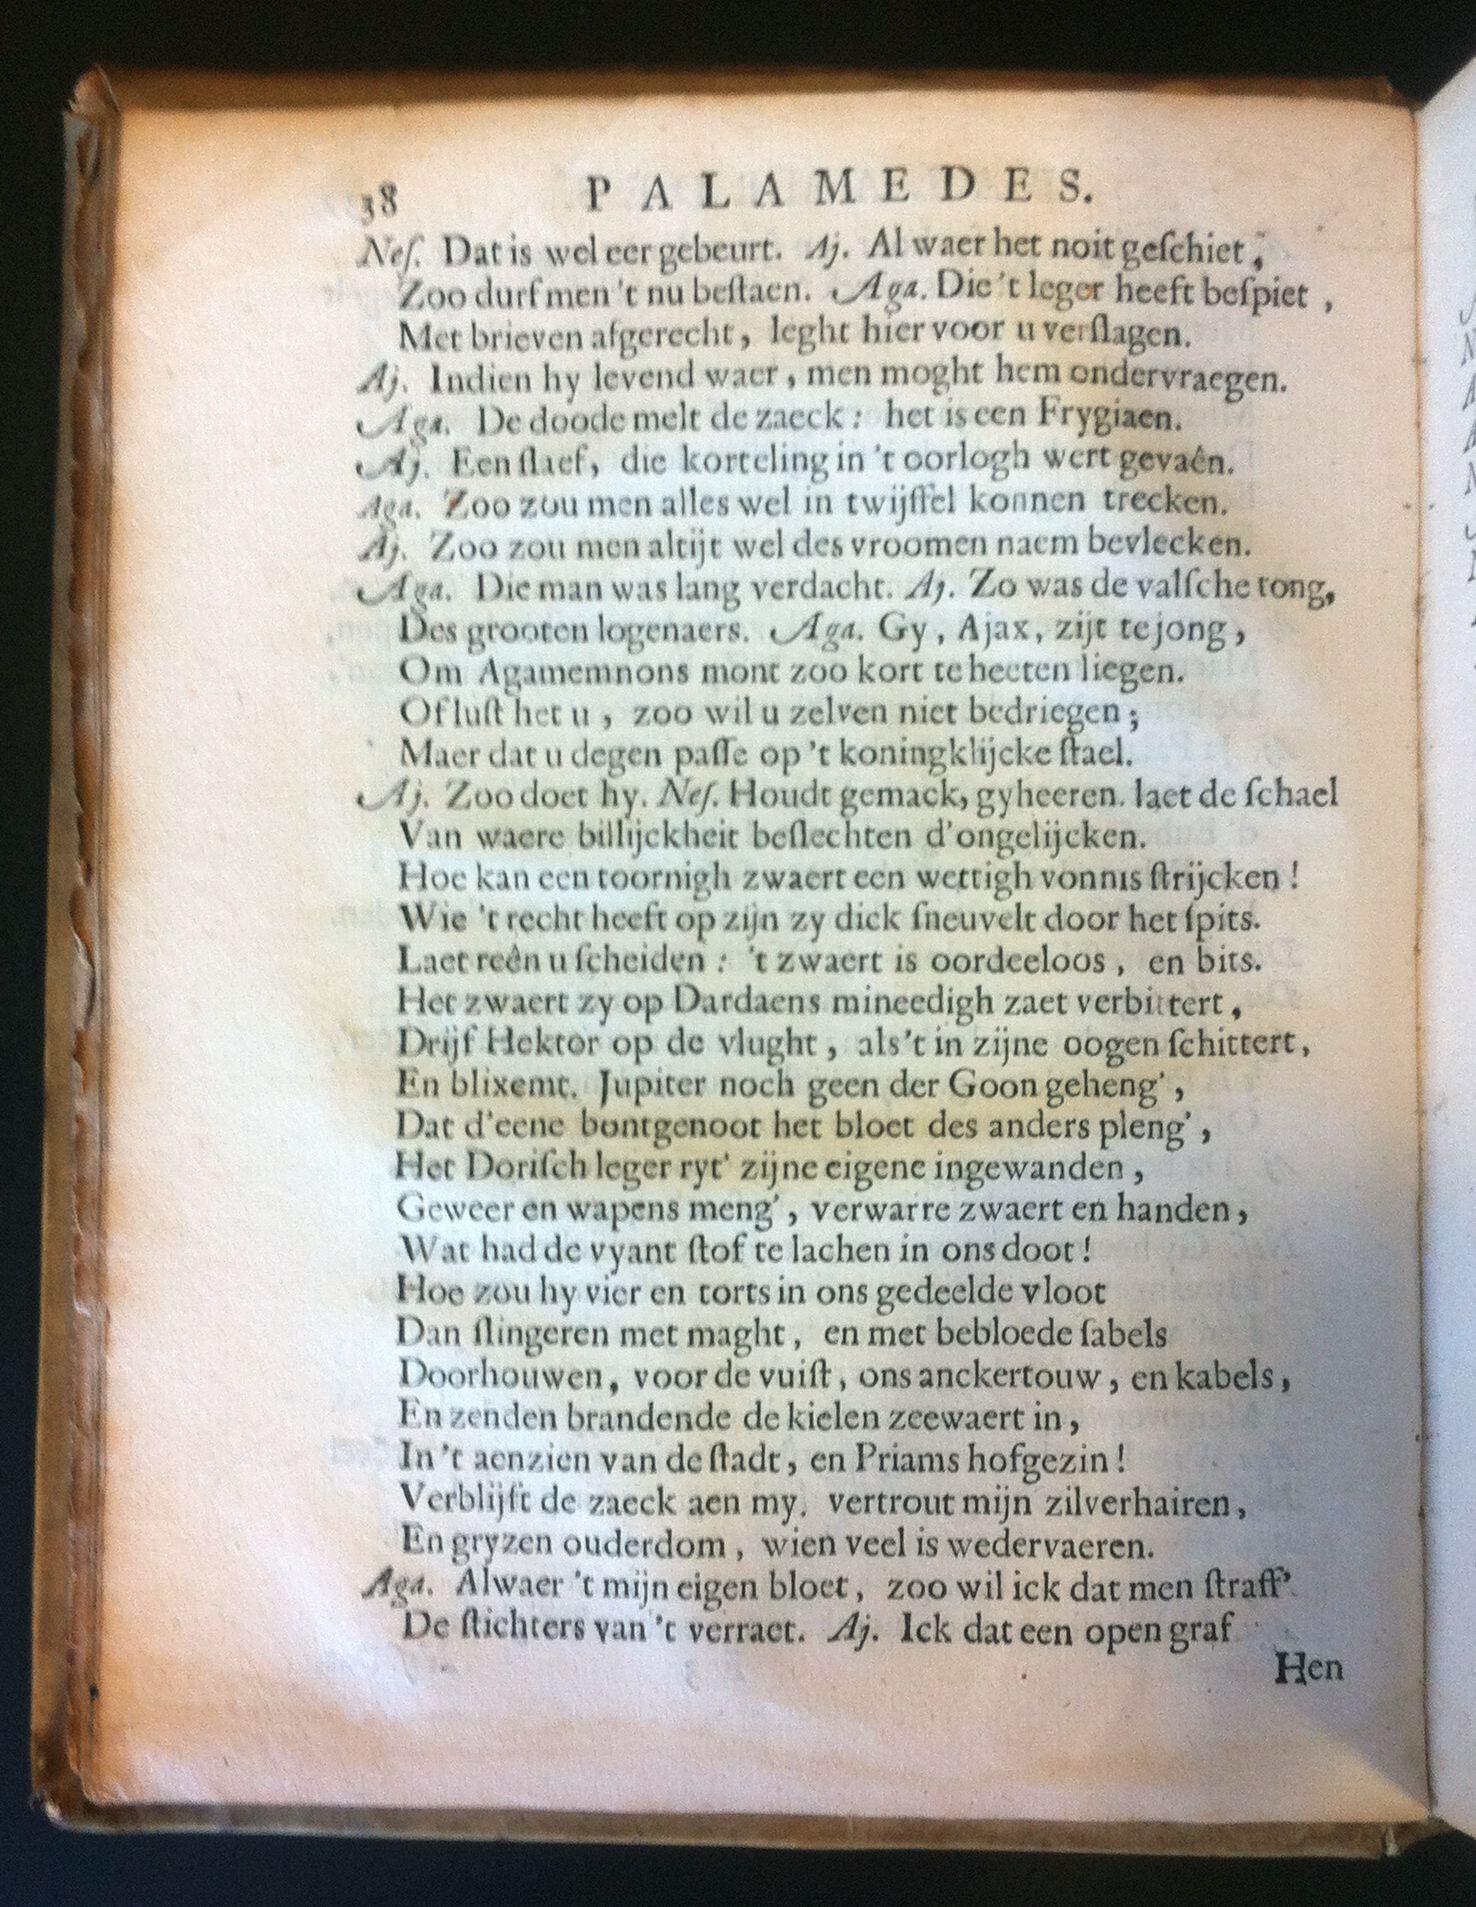 38 PALAMEDES.
Neſ. Dat is wel eer gebeurt. Aj. Al waer het noit geſchiet,
Zoo durf men 't nu beſtaen. Aga. Die 't leger heeft beſpiet,
Met brieven afgerecht, leght hier voor u verſlagen.
Aj. Indien hy levend waer, men moght hem ondervraegen.
Aga. De doode melt de zaeck: het is een Frygiaen.
Aj. Een ſlaef, die korteling in 't oorlogh wert gevaên.
Aga. Zoo zou men alles wel in twijffel konnen trecken.
Aj. Zoo zou men altijt wel des vroomen naem bevlecken.
Aga. Die man was lang verdacht. Aj. Zo was de valſche tong,
Des grooten logenaers. Aga. Gy, Ajax, zijt te jong,
Om Agamemnons mont zoo kort te heeten liegen.
Of luſt het u, zoo wil u zelven niet bedriegen;
Maer dat u degen paſſe op 't koningklijcke ſtael.
Aj. Zoo doet hy. Neſ. Houdt gemack, gy heeren. laet de ſchael
Van waere billijckheit beſlechten d'ongelijcken.
Hoe kan een toornigh zwaert een wettigh vonnis ſtrijcken!
Wie 't recht heeft op zijn zy dick ſneuvelt door het ſpits.
Laet reên u ſcheiden: 't zwaert is oordeeloos, en bits.
Het zwaert zy op Dardaens mineedigh zaet verbittert,
Drijf Hektor op de vlught, als 't in zijne oogen ſchittert,
En blixemt. Jupiter noch geen der Goon geheng',
Dat d'eene bontgenoot het bloet des anders pleng',
Het Doriſch leger ryt' zijne eigene ingewanden,
Geweer en wapens meng', verwarre zwaert en handen,
Wat had de vyant ſtof te lachen in ons doot!
Hoe zou hy vier en torts in ons gedeelde vloot
Dan ſlingeren met maght, en met bebloede ſabels
Doorhouwen, voor de vuiſt, ons anckertouw, en kabels,
En zenden brandende de kielen zeewaert in,
In 't aenzien van de ſtadt, en Priams hofgezin!
Verblijft de zaeck aen my. vertrout mijn zilverhairen,
En gryzen ouderdom, wien veel is wedervaeren.
Aga. Alwaer 't mijn eigen bloet, zoo wil ick dat men ſtraff'
De ſtichters van 't verraet. Aj. Ick dat een open graf
Hen